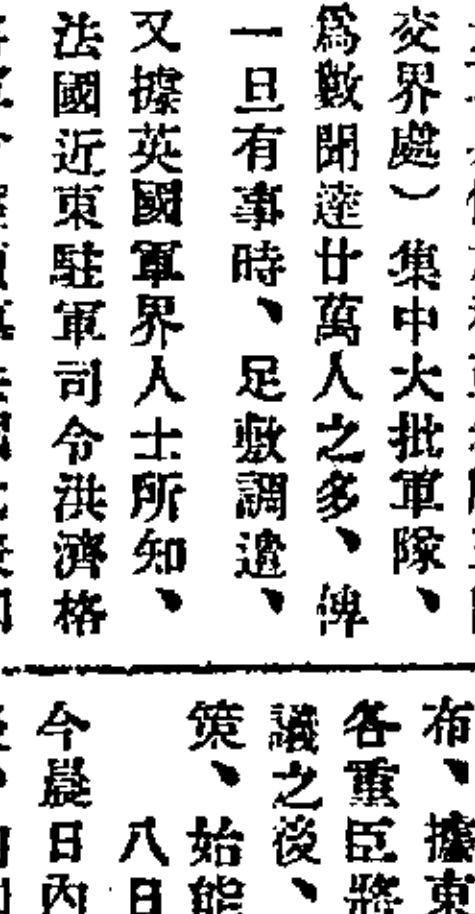 交界處）集中大批軍隊、
爲數聞達廿萬人之多、俾
一旦有事時、足敷調遣、
又據英國軍界人士所知、
法國近東駐軍司令洪濟格
布、據東
各重臣將
議之後、
策、始能
八日
今晨日內